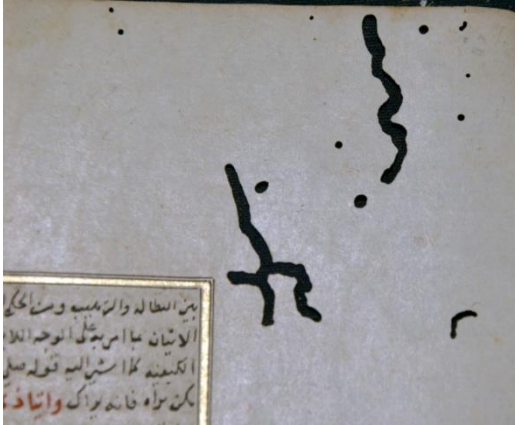 بين البطالة والترهيب ومن الحكى
الاتيان بما امر به على الوجه اللا
الكيفية كما اشير اليه قوله صلى
يكن تراه فانه يراك واتيا ذ